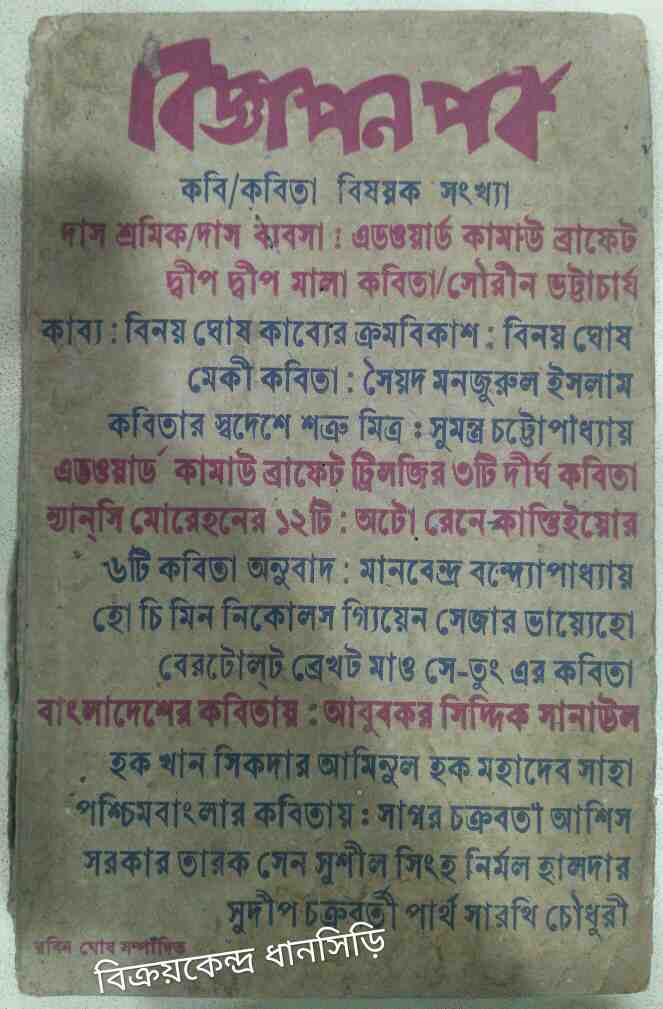 বিজ্ঞাপন পর্ব
কবি/কবিতা বিষয়ক সংখ্যা
দাস শ্রমিক/দাস ব্যবসা : এডওয়ার্ড কামাউ ব্রাফেট
দ্বীপ দ্বীপ মালা কবিতা/সৌরীন ভট্টাচার্য
কাব্য : বিনয় ঘোষ কাব্যের ক্রমবিকাশ : বিনয় ঘোষ
মেকী কবিতা : সৈয়দ মনজুরুল ইসলাম
কবিতার স্বদেশে শত্রু মিত্র : সুমন্ত্র চট্টোপাধ্যায়
এডওয়ার্ড কামাউ ব্রাফেট ট্রিলজির ৩টি দীর্ঘ কবিতা
ন্যান্‌সি মোরেহনের ১২টি : অটো রেনে কাস্তিইয়োর
৬টি কবিতা অনুবাদ : মানবেন্দ্র বন্দ্যোপাধ্যায়
হো চি মিন নিকোলস গ্যিয়েন সেজার ভায়্যেহো
বেরটোল্‌ট ব্রেখট মাও সে-তুং এর কবিতা
বাংলাদেশের কবিতায় : আবুবকর সিদ্দিক সানাউল
হক খান সিকদার আমিনুল হক মহাদেব সাহা
পশ্চিমবাংলার কবিতায় : সাগর চক্রবর্তী আশিস
সরকার তারক সেন সুশীল সিংহ নির্মল হালদার
সুদীপ চক্রবর্তী পার্থ সারথি চৌধুরী
রবিন ঘোষ সম্পাদিত
বিক্রয়কেন্দ্র ধানসিড়ি